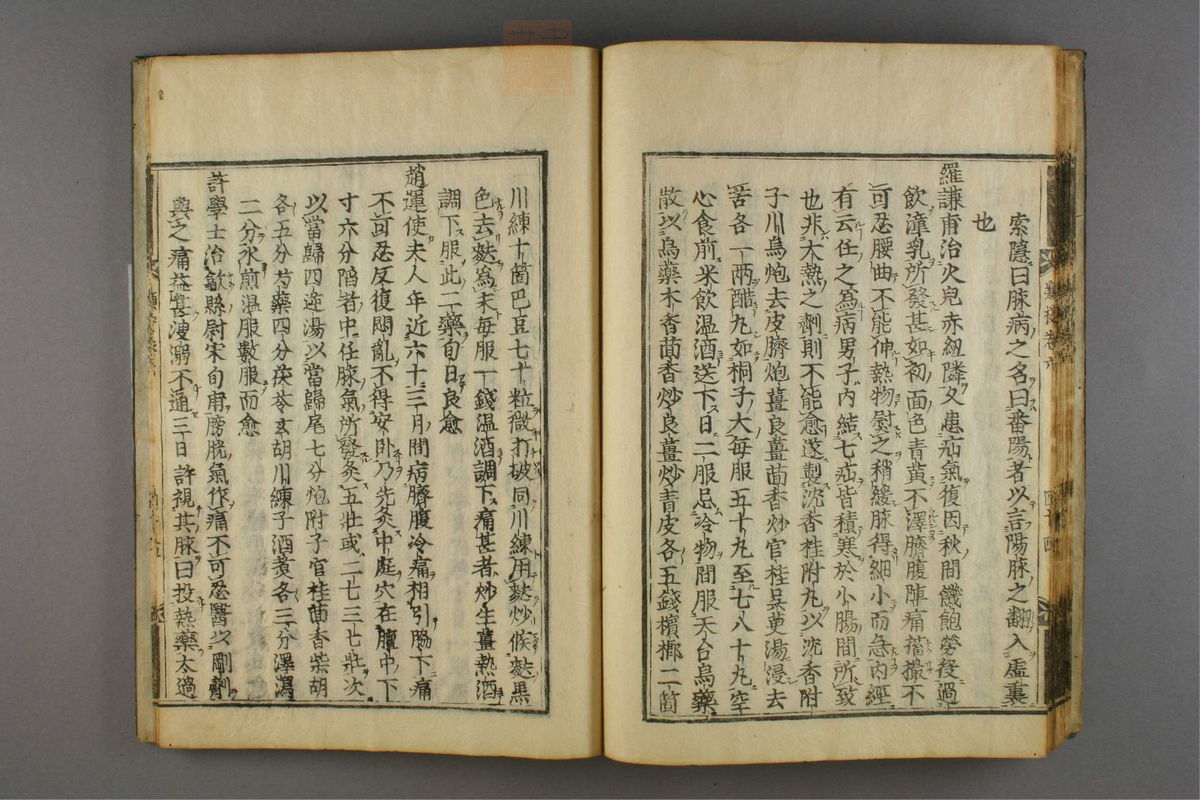 索隱曰脉病之名曰番陽者以言陽脉之翻入虛裏
也
羅謙甫治火兒赤紐隣久患疝氣復因秋間饑飽勞役過
飲潼乳所發甚如初面色青黃不澤臍腹陣痛搐撮不
可忍腰曲不能伸熱物熨之稍緩脉得細小而急內經
有云任之為病男子內結七疝皆積寒於小腸間所致
也非大熱之劑則不能愈遂製沈香桂附丸以沈香附
子川烏炮去皮臍炮薑茴香炒官桂吳茰湯浸去
苦各一兩醋丸如桐子大每服五十丸至七八十丸空
心食前米飲溫酒送下日二服忌冷物間服天台烏藥
散以烏藥木香茴香炒良薑炒青皮各五錢檳榔二箇
川練十箇巴豆七十粒微打破同川練用麩炒候麩黑
色去麩為末每服一錢溫酒調下痛甚者炒生薑熱酒
調下服此二藥旬日良愈
趙運使夫人年近六十三月間病臍腹冷痛相引脇下痛
不可忍反復悶亂不得安卧乃先灸中庭穴在膻中下
寸六分陷者中任脉氣所發灸五壯或二七三七壯次
以當歸四逆湯以當歸尾七分炮附子官桂茴香柴胡
各五分芍藥四分茯苓玄胡川練子酒煑各三分澤瀉
二分水煎溫服數服而愈
許學士治歙縣尉宋荀甫膀胱氣作痛不可忍醫以剛劑
與之痛益甚溲溺不通三日許視其脉曰投熱藥太過
類按卷六